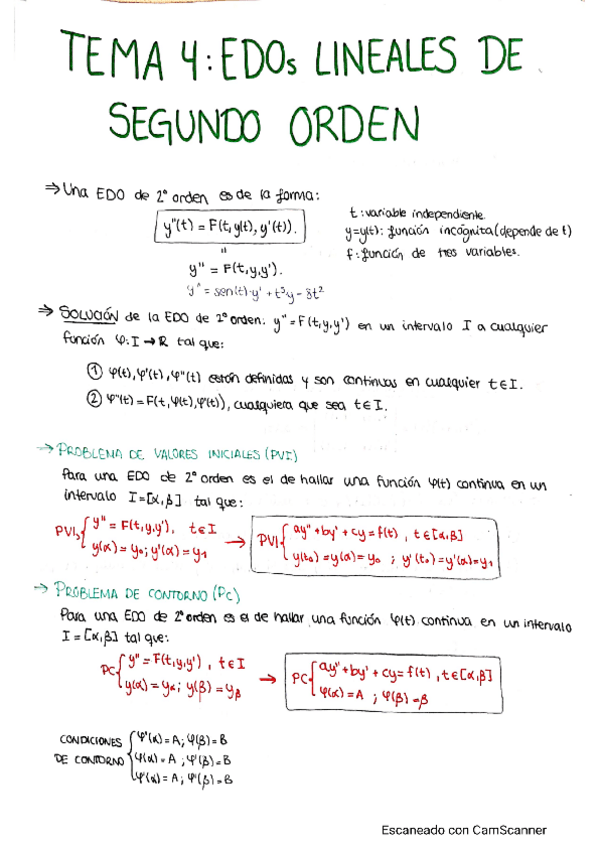 TEMA 4: EDOs LINEALES DE
SEGUNDO ORDEN
⇒ Una EDO de 2º orden es de la forma:
y''(t) = F(t, y(t), y'(t)).
"
y'' = F(t,y,y').
y'' = sen(t)·y' + t³y - 8t²
t: variable independiente.
y=y(t): función incógnita (depende de t)
f: función de tres variables.
⇒ SOLUCIÓN de la EDO de 2º orden: y'' = F(t,y,y') en un intervalo I a cualquier
función φ: I → R tal que:
① φ(t), φ'(t), φ''(t) están definidas y son continuas en cualquier t∈I.
② φ''(t) = F(t, φ(t), φ'(t)), cualquiera que sea t∈I.
→ PROBLEMA DE VALORES INICIALES (PVI)
Para una EDO de 2º orden es el de hallar una función φ(t) continua en un
intervalo I=[α,β] tal que:
PVI { y'' = F(t,y,y'), t∈I
y(α) = y₀; y'(α) = y₁
→ PVI { ay'' + by' + cy = f(t), t∈[α,β]
y(t₀) = y(α) = y₀ ; y'(t₀) = y'(α) = y₁
→ PROBLEMA DE CONTORNO (PC)
Para una EDO de 2º orden es el de hallar una función φ(t) continua en un intervalo
I = [α,β] tal que:
PC { y'' = F(t,y,y'), t∈I
y(α) = yα; y(β) = yβ
→ PC { ay'' + by' + cy = f(t), t∈[α,β]
φ(α) = A ; φ(β) = β
CONDICIONES
DE CONTORNO
{ φ'(α) = A; φ(β) = B
φ(α) = A ; φ'(β) = B
φ'(α) = A; φ'(β) = B
Escaneado con CamScanner